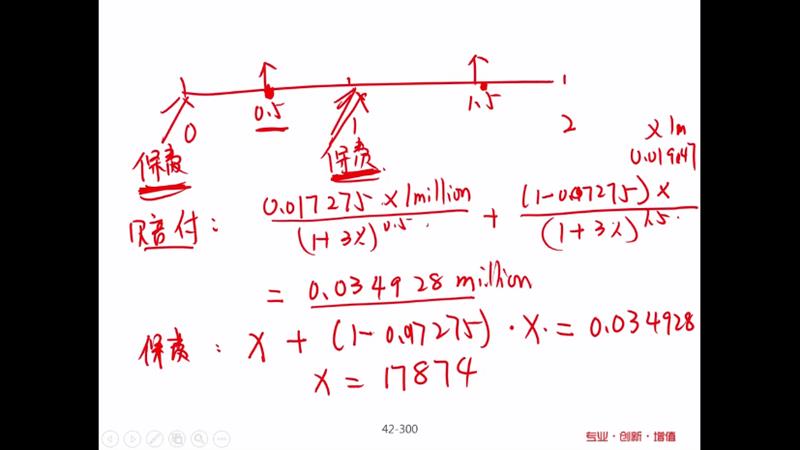 0 0.5 1 1.5 2
保费 保费 ×1m
0.019047
赔付: 0.017275 ×1million / (1+3%)^0.5 + (1-0.017275)× / (1+3%)^1.5
= 0.034928 million
保费: x + (1-0.017275)·x = 0.034928
x = 17874
42-300
专业·创新·增值